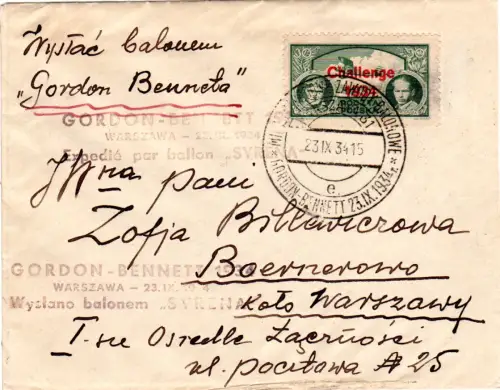 Wysłać balonem
"Gordon Benneta"
Challenge
1934
GORDON-BENNETT 1934
WARSZAWA - 23.IX.1934
Expedié par ballon „SYRENA"
23 IX 34 15
GORDON-BENNETT 23.IX.1934.
e.
JWna pani
Zofja Billewiczowa
Boernerowo
GORDON-BENNETT 1934
WARSZAWA - 23.IX.1934
Wysłano balonem „SYRENA"
koło Warszawy
I-sze Osiedle Łączności
ul. pocztowa A 25